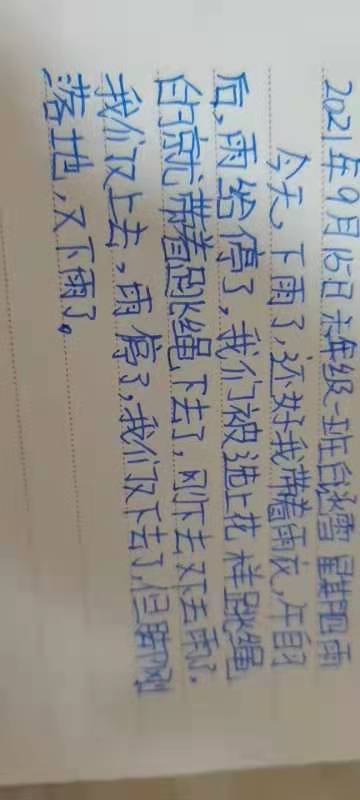 2021年9月16日 六年级一班 白雪 星期四 雨
今天,下雨了,还好我带着雨衣,午自
后,雨给停了,我们被选上花样跳绳
的就带着跳绳下去了,刚下去又下去雨了.
我们又上去,雨停了,我们又下去了,但脚刚
落地,又下雨了。